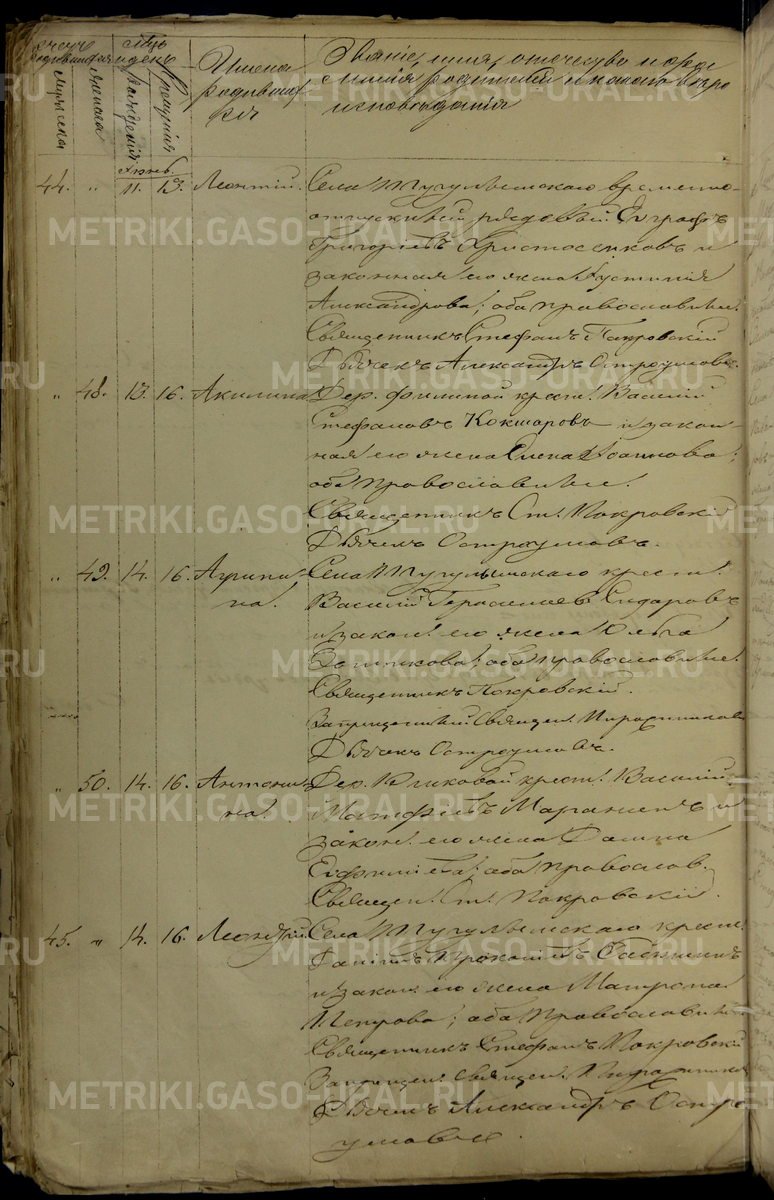 Счетъ родившихся
Мужеска
Женска
Мѣсяцъ и день
рожденія
крещенія
Имена родившихся
Званіе, имя, отчество и фамилія родителей и какого вѣроисповѣданія
Іюнь.
44. " 11. 13. Леонтій. Села Тугулымскаго временно-
отпускной рядовый Евграфъ
Григорьевъ и
законная его жена Іустинія
Александрова; оба православные.
Священникъ Стефанъ Покровскій
Дьячекъ Александръ Остроумовъ.
" 48. 13. 16. Акилина Дер. крест. Василій
Стефановъ Кокшаровъ и закон-
ная его жена Елена Іоаннова;
оба православные.
Священникъ Ст. Покровскій
Дьячекъ Остроумовъ.
" 49. 14. 16. Агрипи- Села Тугулымскаго крест.
на. Василій Герасимовъ Сидоровъ
и закон. его жена
оба православные.
Священникъ Покровскій.
Запрещенный Священ.
Дьячекъ Остроумовъ.
" 50. 14. 16. Антони- Дер. Юшковой крест. Василій
на. Матфіевъ и
закон. его жена
Евфиміева; оба правослов.
Священ. Ст. Покровскій.
45. " 14. 16. Леонтій. Села Тугулымскаго крест.
Прокопіевъ
и закон. его жена Матрона
Петрова; оба Православные
Священникъ Стефанъ Покровскій
Запрещен. Священ.
Дьячекъ Александръ Остро-
умовъ.
METRIKI.GASO-URAL.RU